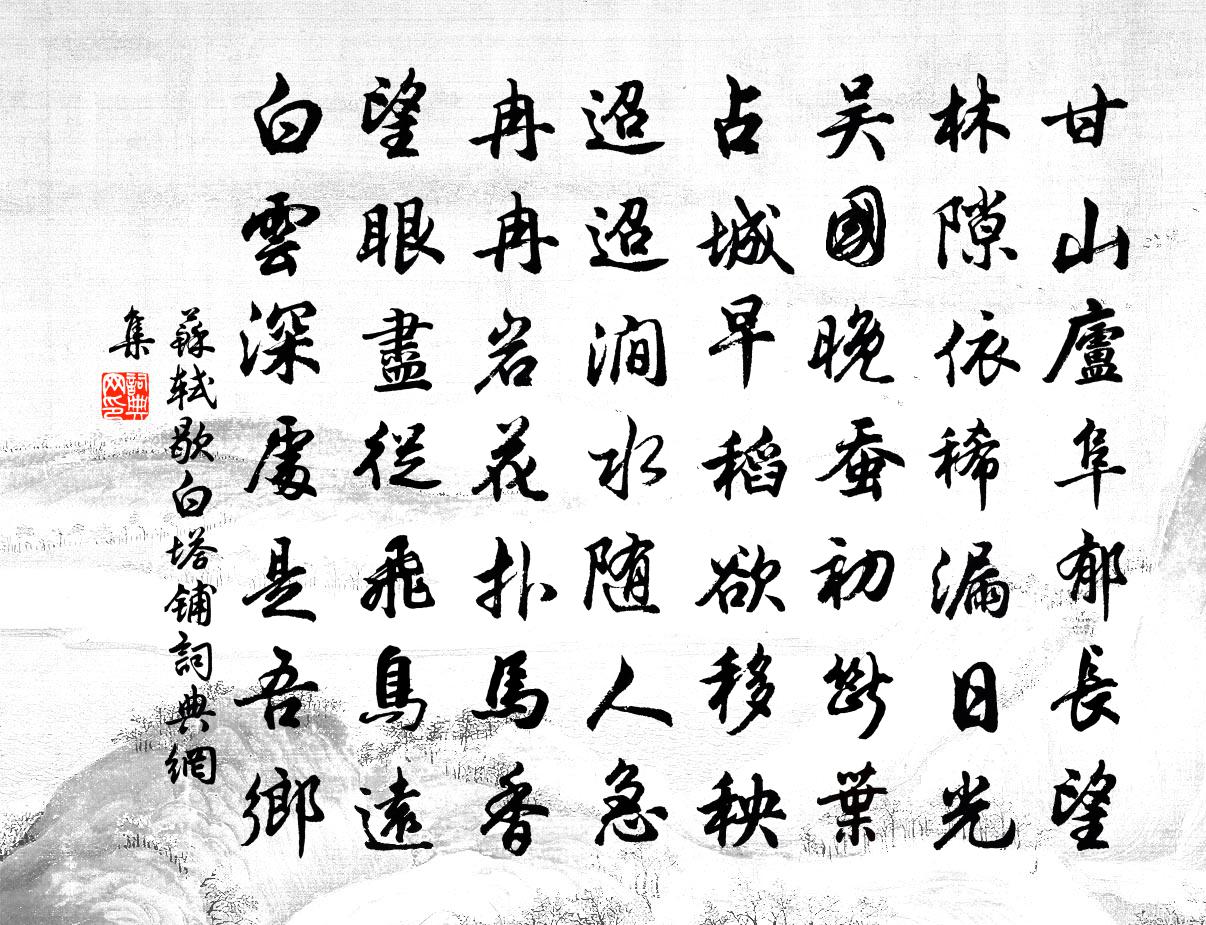 甘山廬阜郁長望
林隙依稀漏日光
吴國晚蚕初斷葉
占城早稻欲移秧
迢迢澗水随人急
冉冉岩花扑馬香
望眼盡從飛鳥遠
白雲深處是吾鄉
蘇軾歇白塔鋪詞典網
集
詞典网印